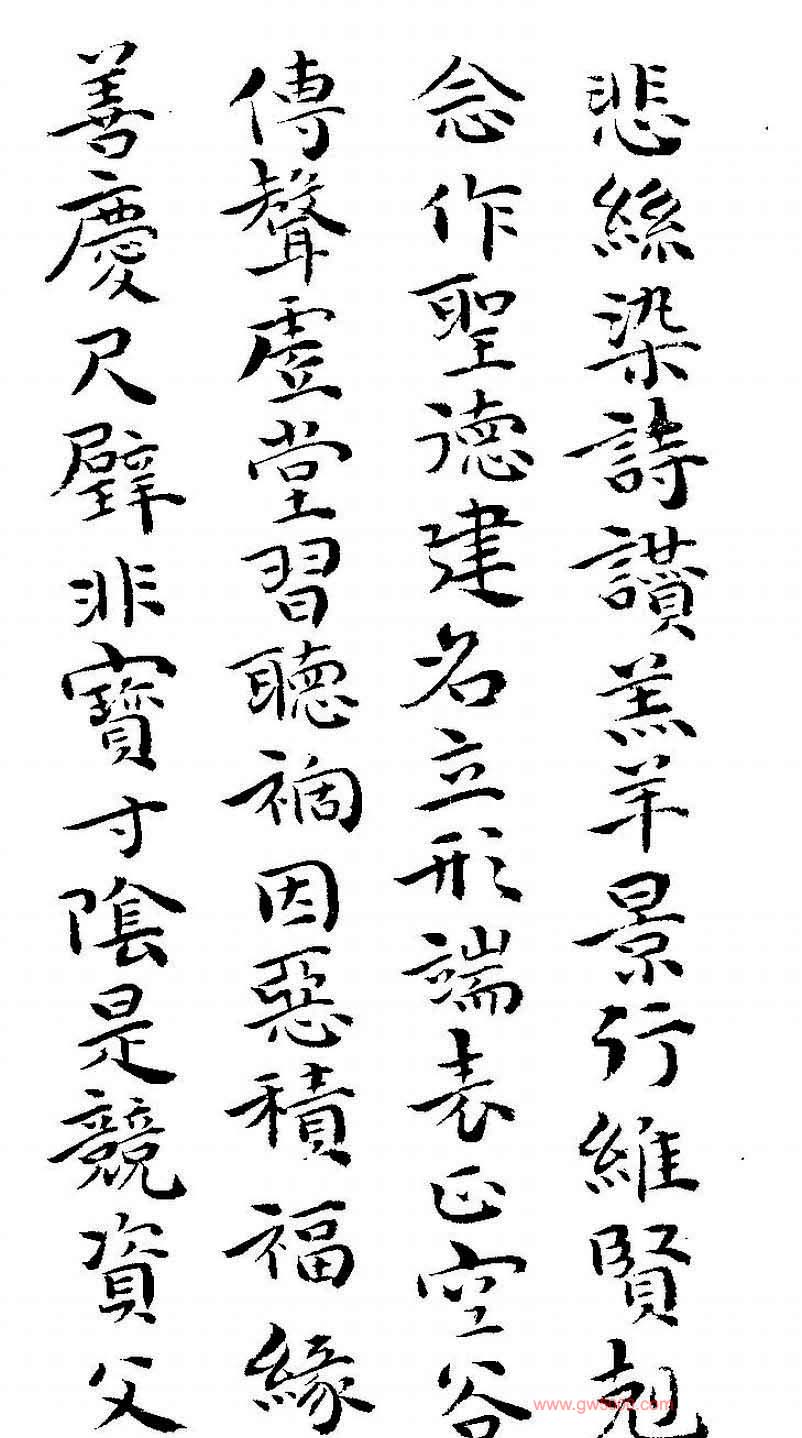 悲絲染詩讚羔羊景行維賢剋
念作聖德建名立形端表正空谷
傳聲虛堂習聽禍因惡積福緣
善慶尺璧非寶寸陰是競資父